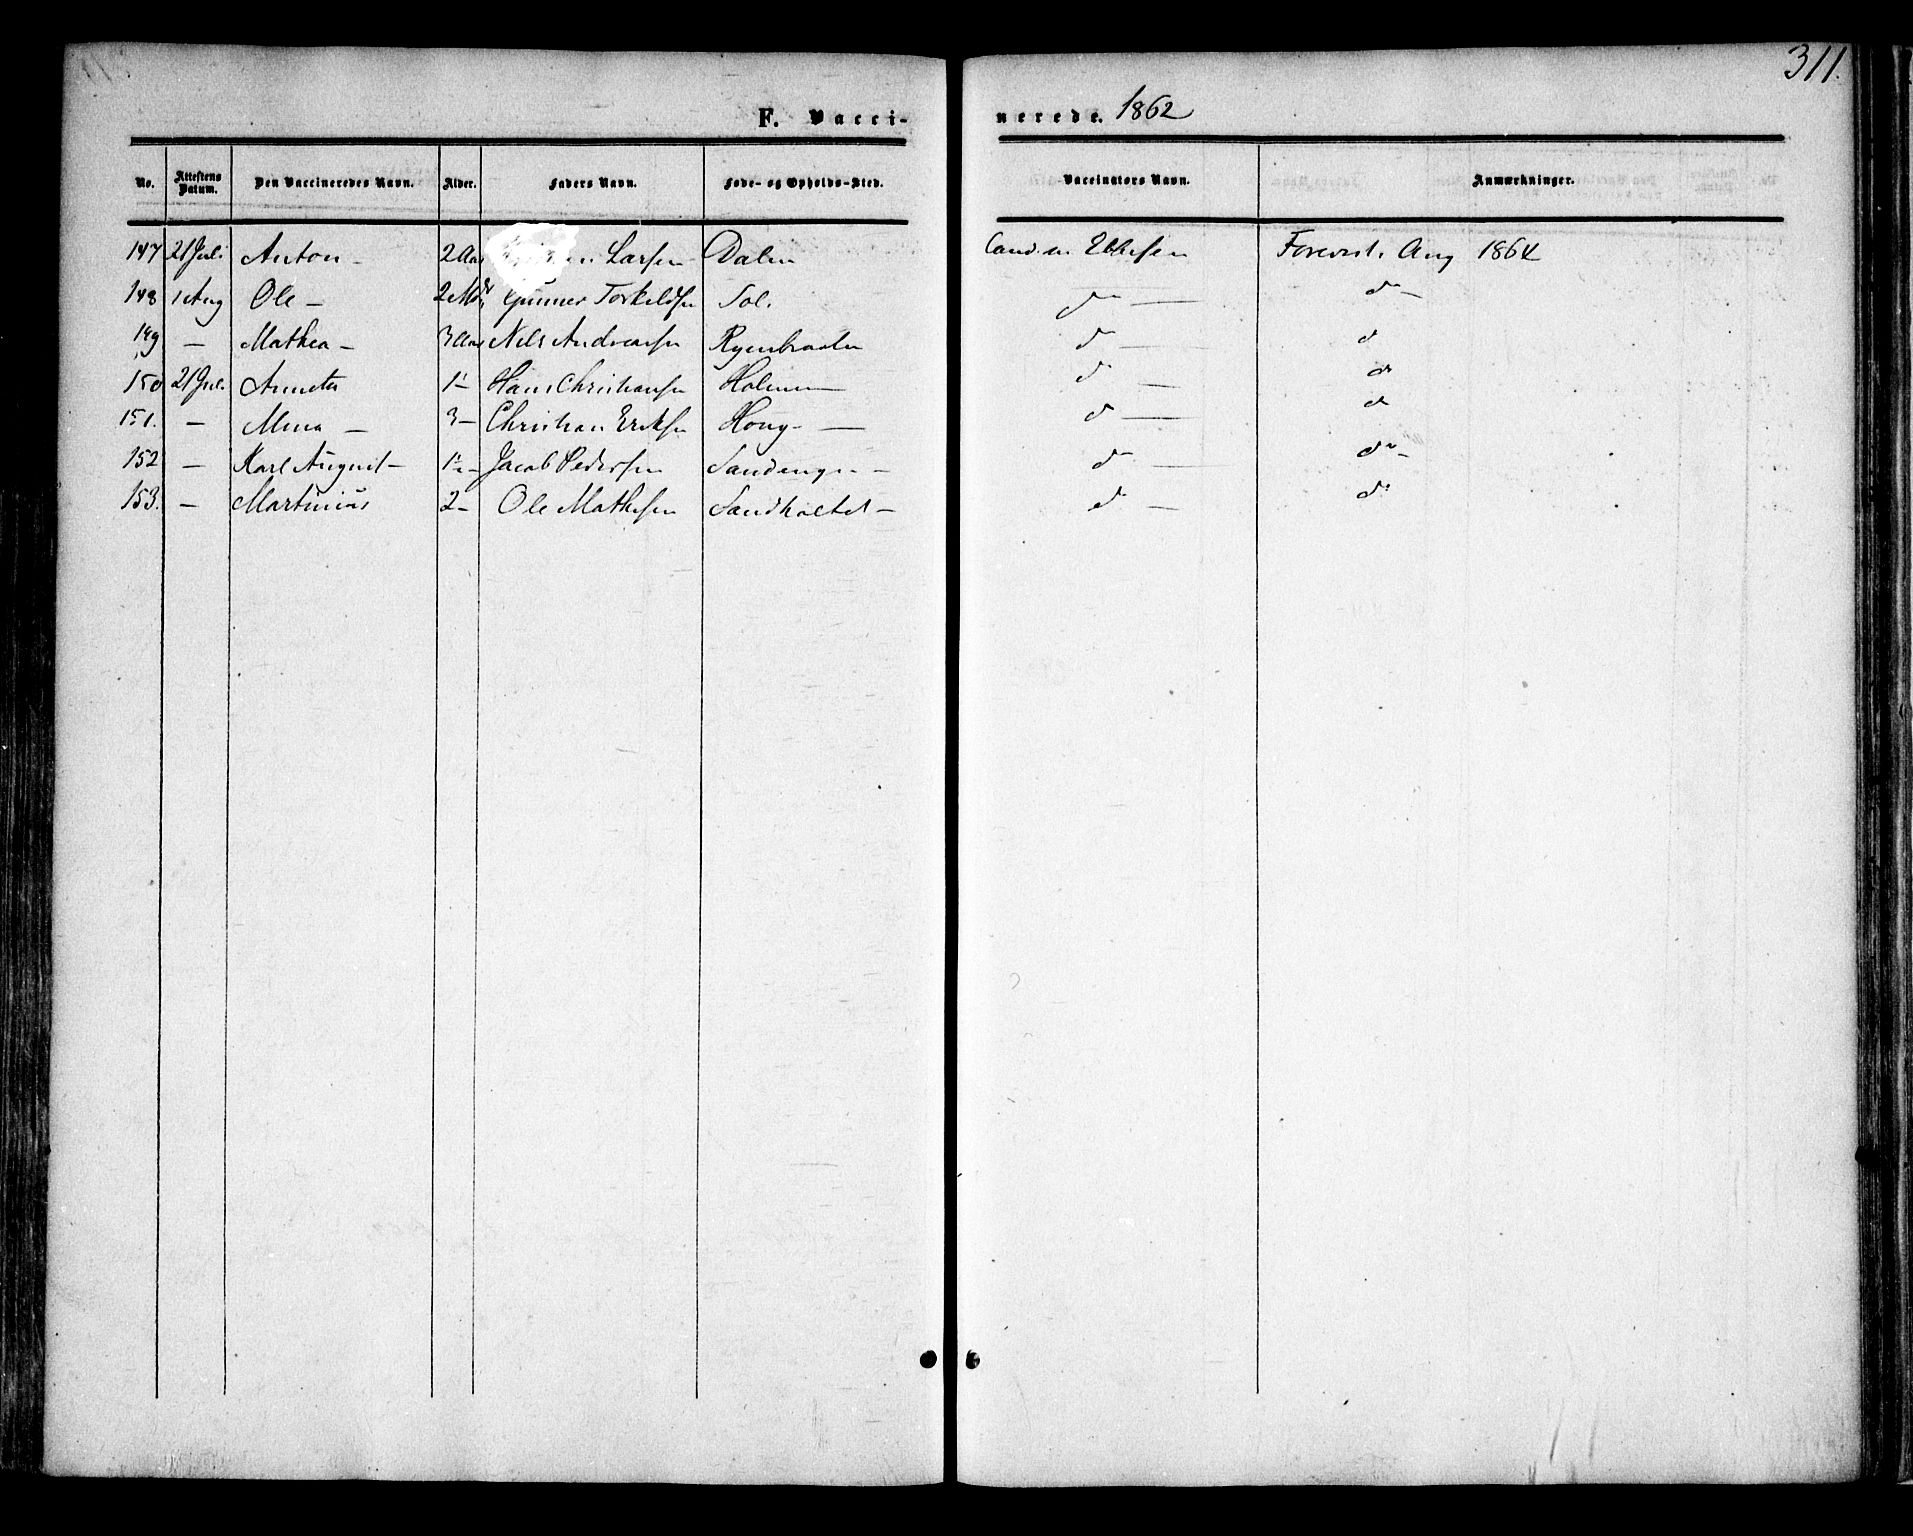 311.
F. Vacci-nerede. 1862
No. Attestens Datum. Den Vaccineredes Navn. Alder. Faders Navn. Føde- og Opholds-Sted. Vaccinators Navn. Anmærkninger.
147 21 Juli Anton - 2 Aar Larsen Dalen Cand. m. Forevist. Aug 1864
148 1 Aug Ole - 2 Gunner Torkeldsen Sol. do — do -
149 — Mathea - 3 Aar Nils Andreasen Ryenbraaten do — do
150 21 Jul. Annette 1 - Hans Christiansen Holmen — do — do
151. — Mina — 3 - Christian Eriksen Houg - — do — do
152 — Karl August - 1 - Jacob Pedersen Sandengen - do — do -
153. — Martinius 2 - Ole Mathisen Sandholtet - do — do